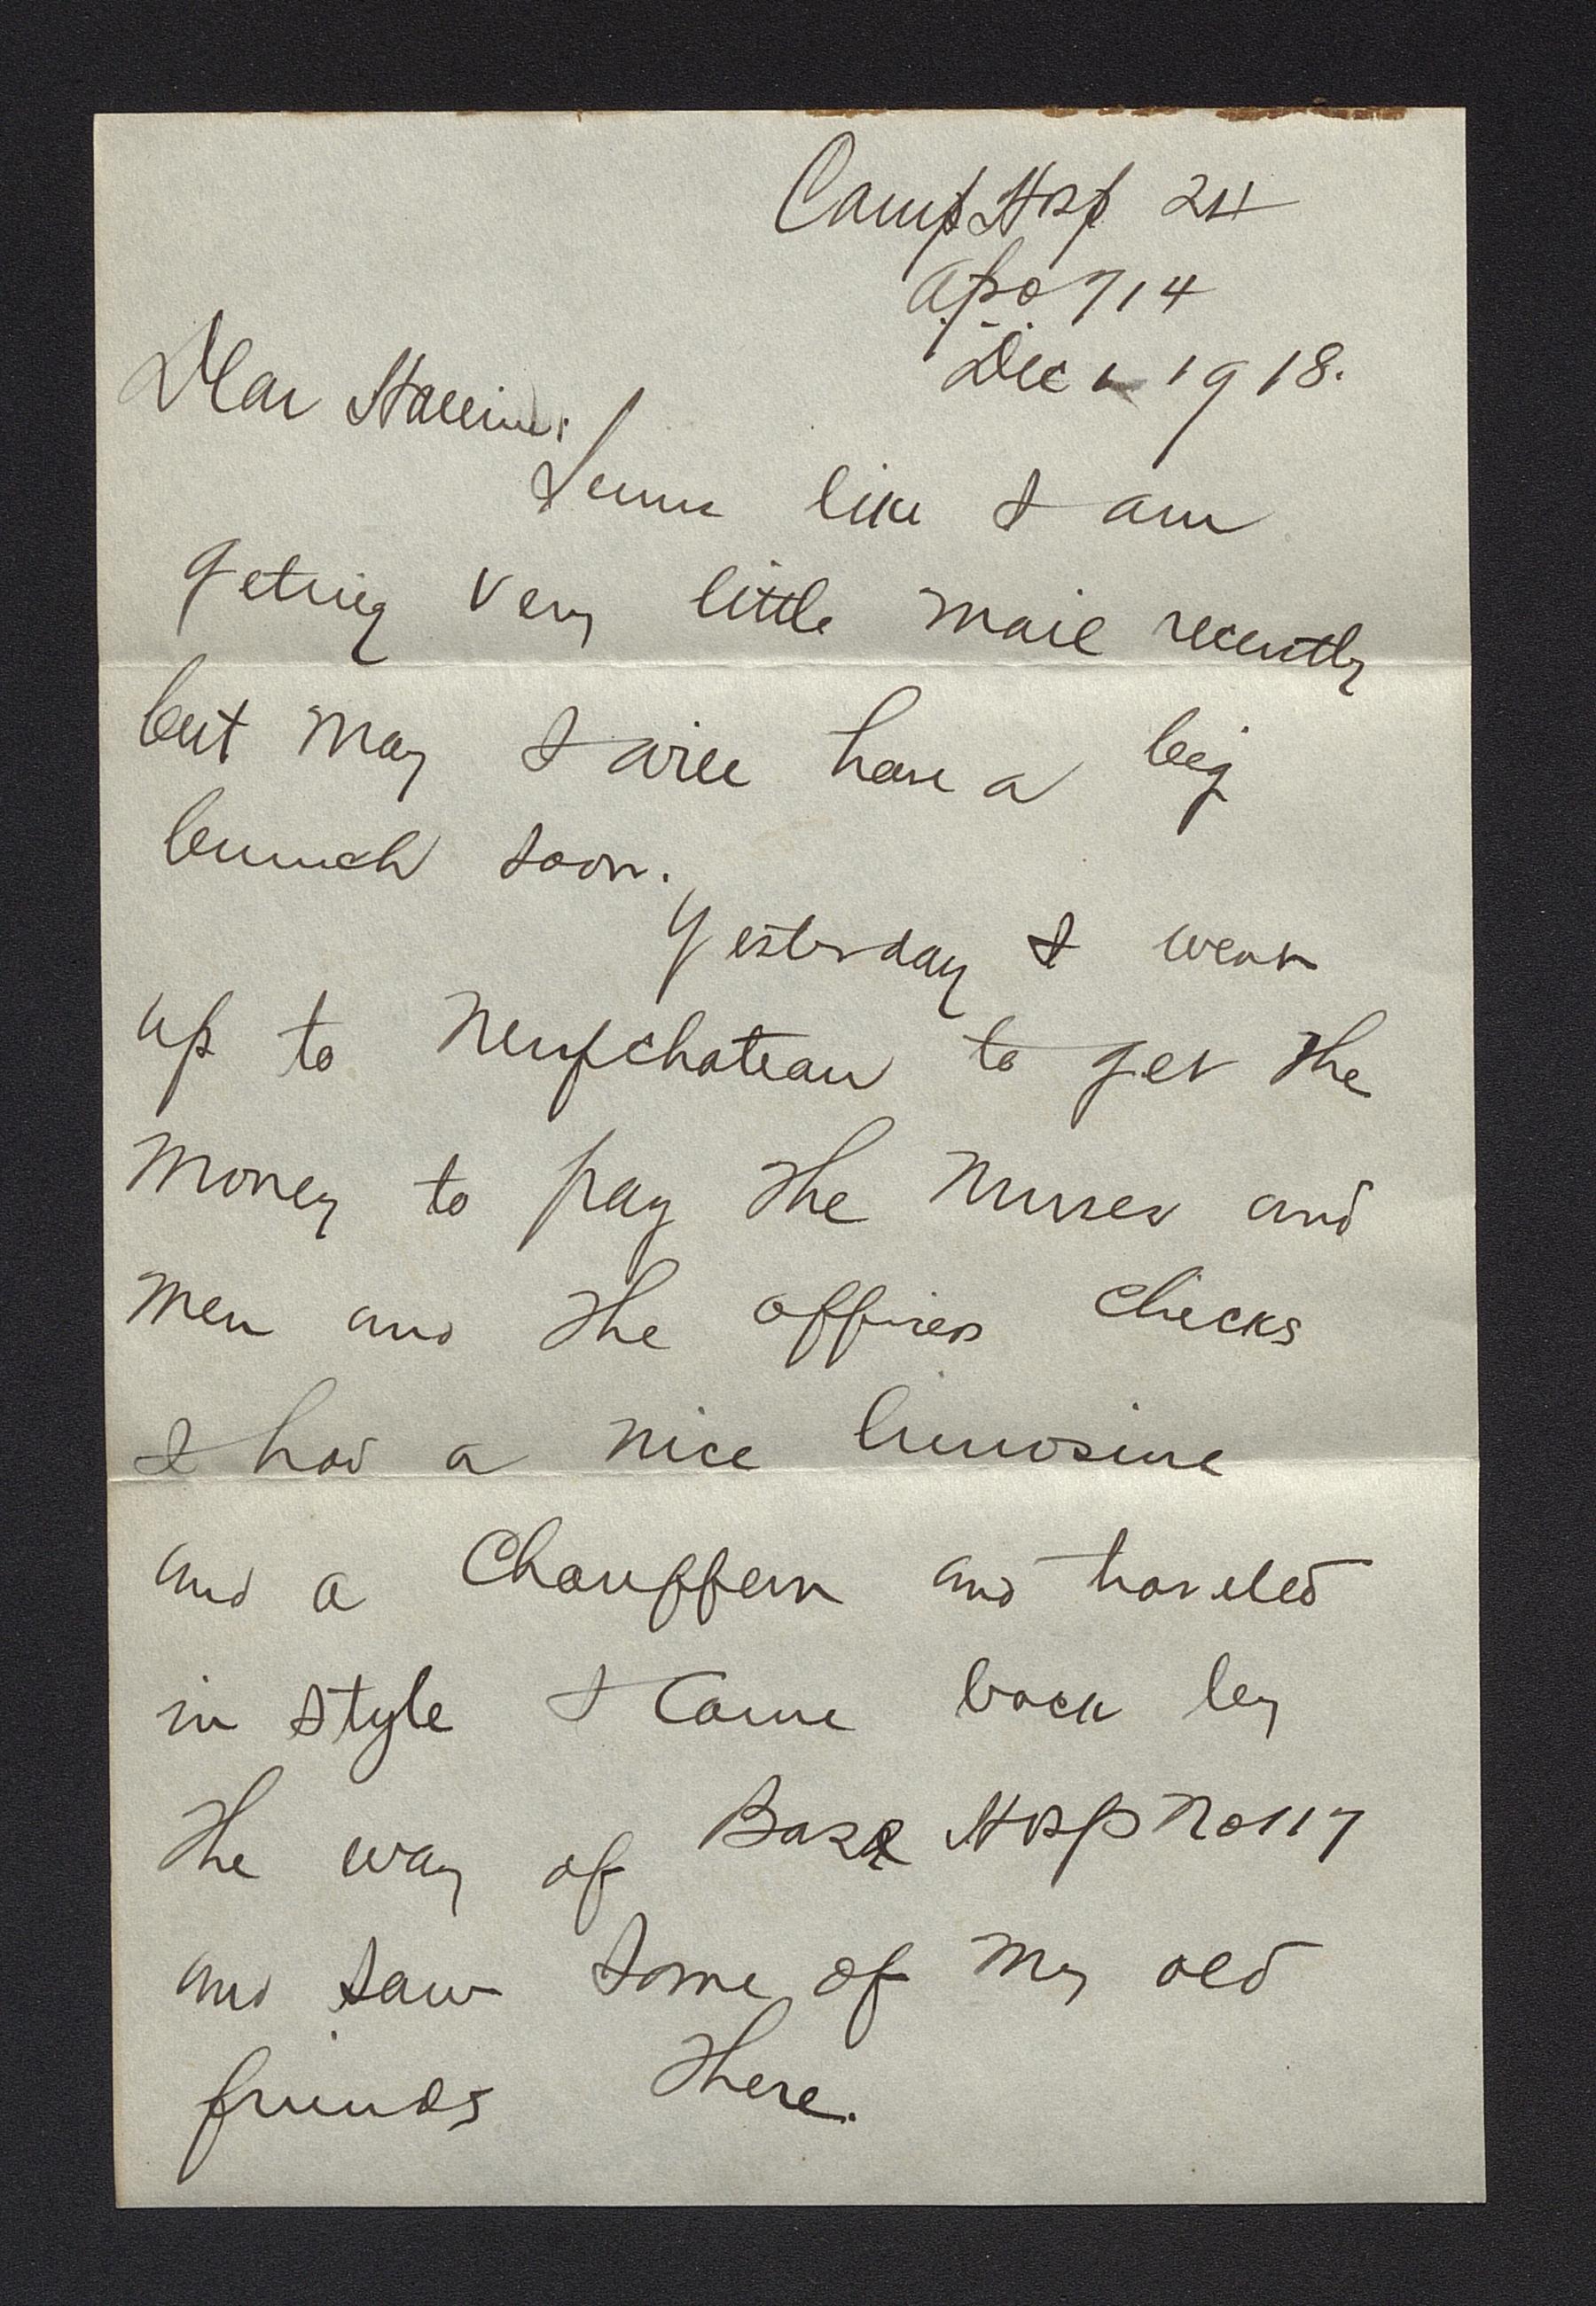 Camp Hosp 24
A.P.O. 714
Dec 1918.
Dear
Seems like I am
geting very little mail recently
but may I will have a big
bunch soon.
Yesterday I went
up to Neufchateau to get the
money to pay the nurses and
men and the officers checks
I had a nice limosine
and a Chauffeur and traveled
in style I came back by
the way of Base Hosp No 117
and saw some of my old
friends there.